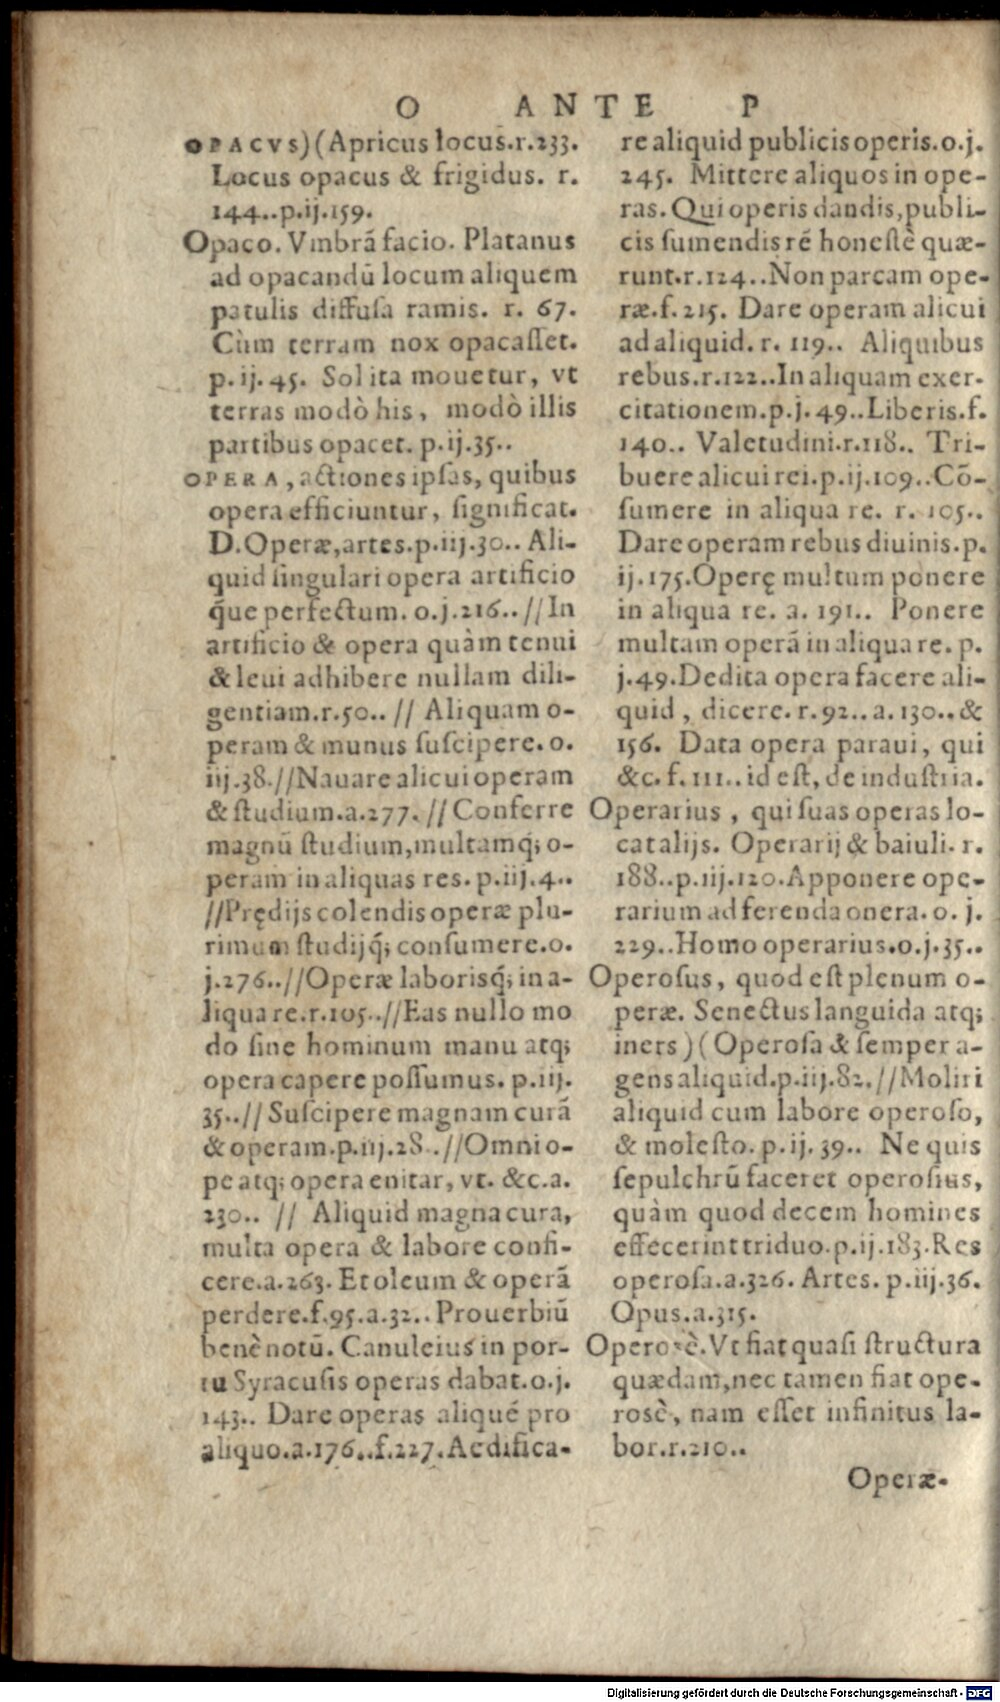 O ANTE P
OPACVS)(Apricus locus.r.233.
Locus opacus & frigidus. r.
144..p.ij.159.
Opaco. Vmbrā facio. Platanus
ad opacandū locum aliquem
patulis diffusa ramis. r. 67.
Cùm terram nox opacasset.
p.ij.45. Sol ita mouetur, vt
terras modò his, modò illis
partibus opacet. p.ij.35..
OPERA, actiones ipsas, quibus
opera efficiuntur, significat.
D.Operæ,artes.p.iij.30.. Ali-
quid singulari opera artificio
q́ue perfectum. o.j.216..//In
artificio & opera quàm tenui
& leui adhibere nullam dili-
gentiam.r.50..// Aliquam o-
peram & munus suscipere.o.
iij.38.//Nauare alicui operam
& studium.a.277.//Conferre
magnū studium,multamq́; o-
peram in aliquas res.p.iij.4..
//Prędijs colendis operæ plu-
rimum studijq́; consumere.o.
j.276..//Operæ laborisq́; in a-
liqua re.r.105..//Eas nullo mo
do sine hominum manu atq;
opera capere possumus. p.iij.
35..// Suscipere magnam curā
& operam.p.iij.28..//Omni o-
pe atq; opera enitar, vt. &c.a.
230.. // Aliquid magna cura,
multa opera & labore confi-
cere.a.263. Et oleum & operā
perdere.f.95.a.32..Prouerbiū
benè notū. Canuleius in por-
tu Syracusis operas dabat.o.j.
143.. Dare operas aliqué pro
aliquo.a.176..f.227.Aedifica-
re aliquid publicis operis.o.j.
245. Mittere aliquos in ope-
ras. Qui operis dandis,publi-
cis sumendis rē honestè quæ-
runt.r.124..Non parcam ope-
ræ.f.215. Dare operam alicui
ad aliquid.r. 119.. Aliquibus
rebus.r.122..In aliquam exer-
citationem.p.j.49..Liberis.f.
140.. Valetudini.r.118.. Tri-
buere alicui rei.p.ij.109..Cō-
sumere in aliqua re. r. 105..
Dare operam rebus diuinis.p.
ij.175.Operę multum ponere
in aliqua re. a. 191.. Ponere
multam operā in aliqua re. p.
j.49.Dedita opera facere ali-
quid , dicere.r.92..a.130..&
156. Data opera paraui, qui
&c.f.111..id est, de industria.
Operarius , qui suas operas lo-
cat alijs. Operarij & baiuli. r.
188..p.iij.120.Apponere ope-
rarium ad ferenda onera.o.j.
229..Homo operarius.o.j.35..
Operosus, quod est plenum o-
peræ. Senectus languida atq;
iners)(Operosa & semper a-
gens aliquid.p.iij.82.//Moliri
aliquid cum labore operoso,
& molesto.p.ij.39.. Ne quis
sepulchrū faceret operosius,
quàm quod decem homines
effecerint triduo.p.ij.183.Res
operosa.a.326. Artes. p.iij.36.
Opus.a.315.
Operosè.Vt fiat quasi structura
quædam,nec tamen fiat ope-
rosè, nam esset infinitus la-
bor.r.210..
Operæ-
Digitalisierung gefördert durch die Deutsche Forschungsgemeinschaft - DFG